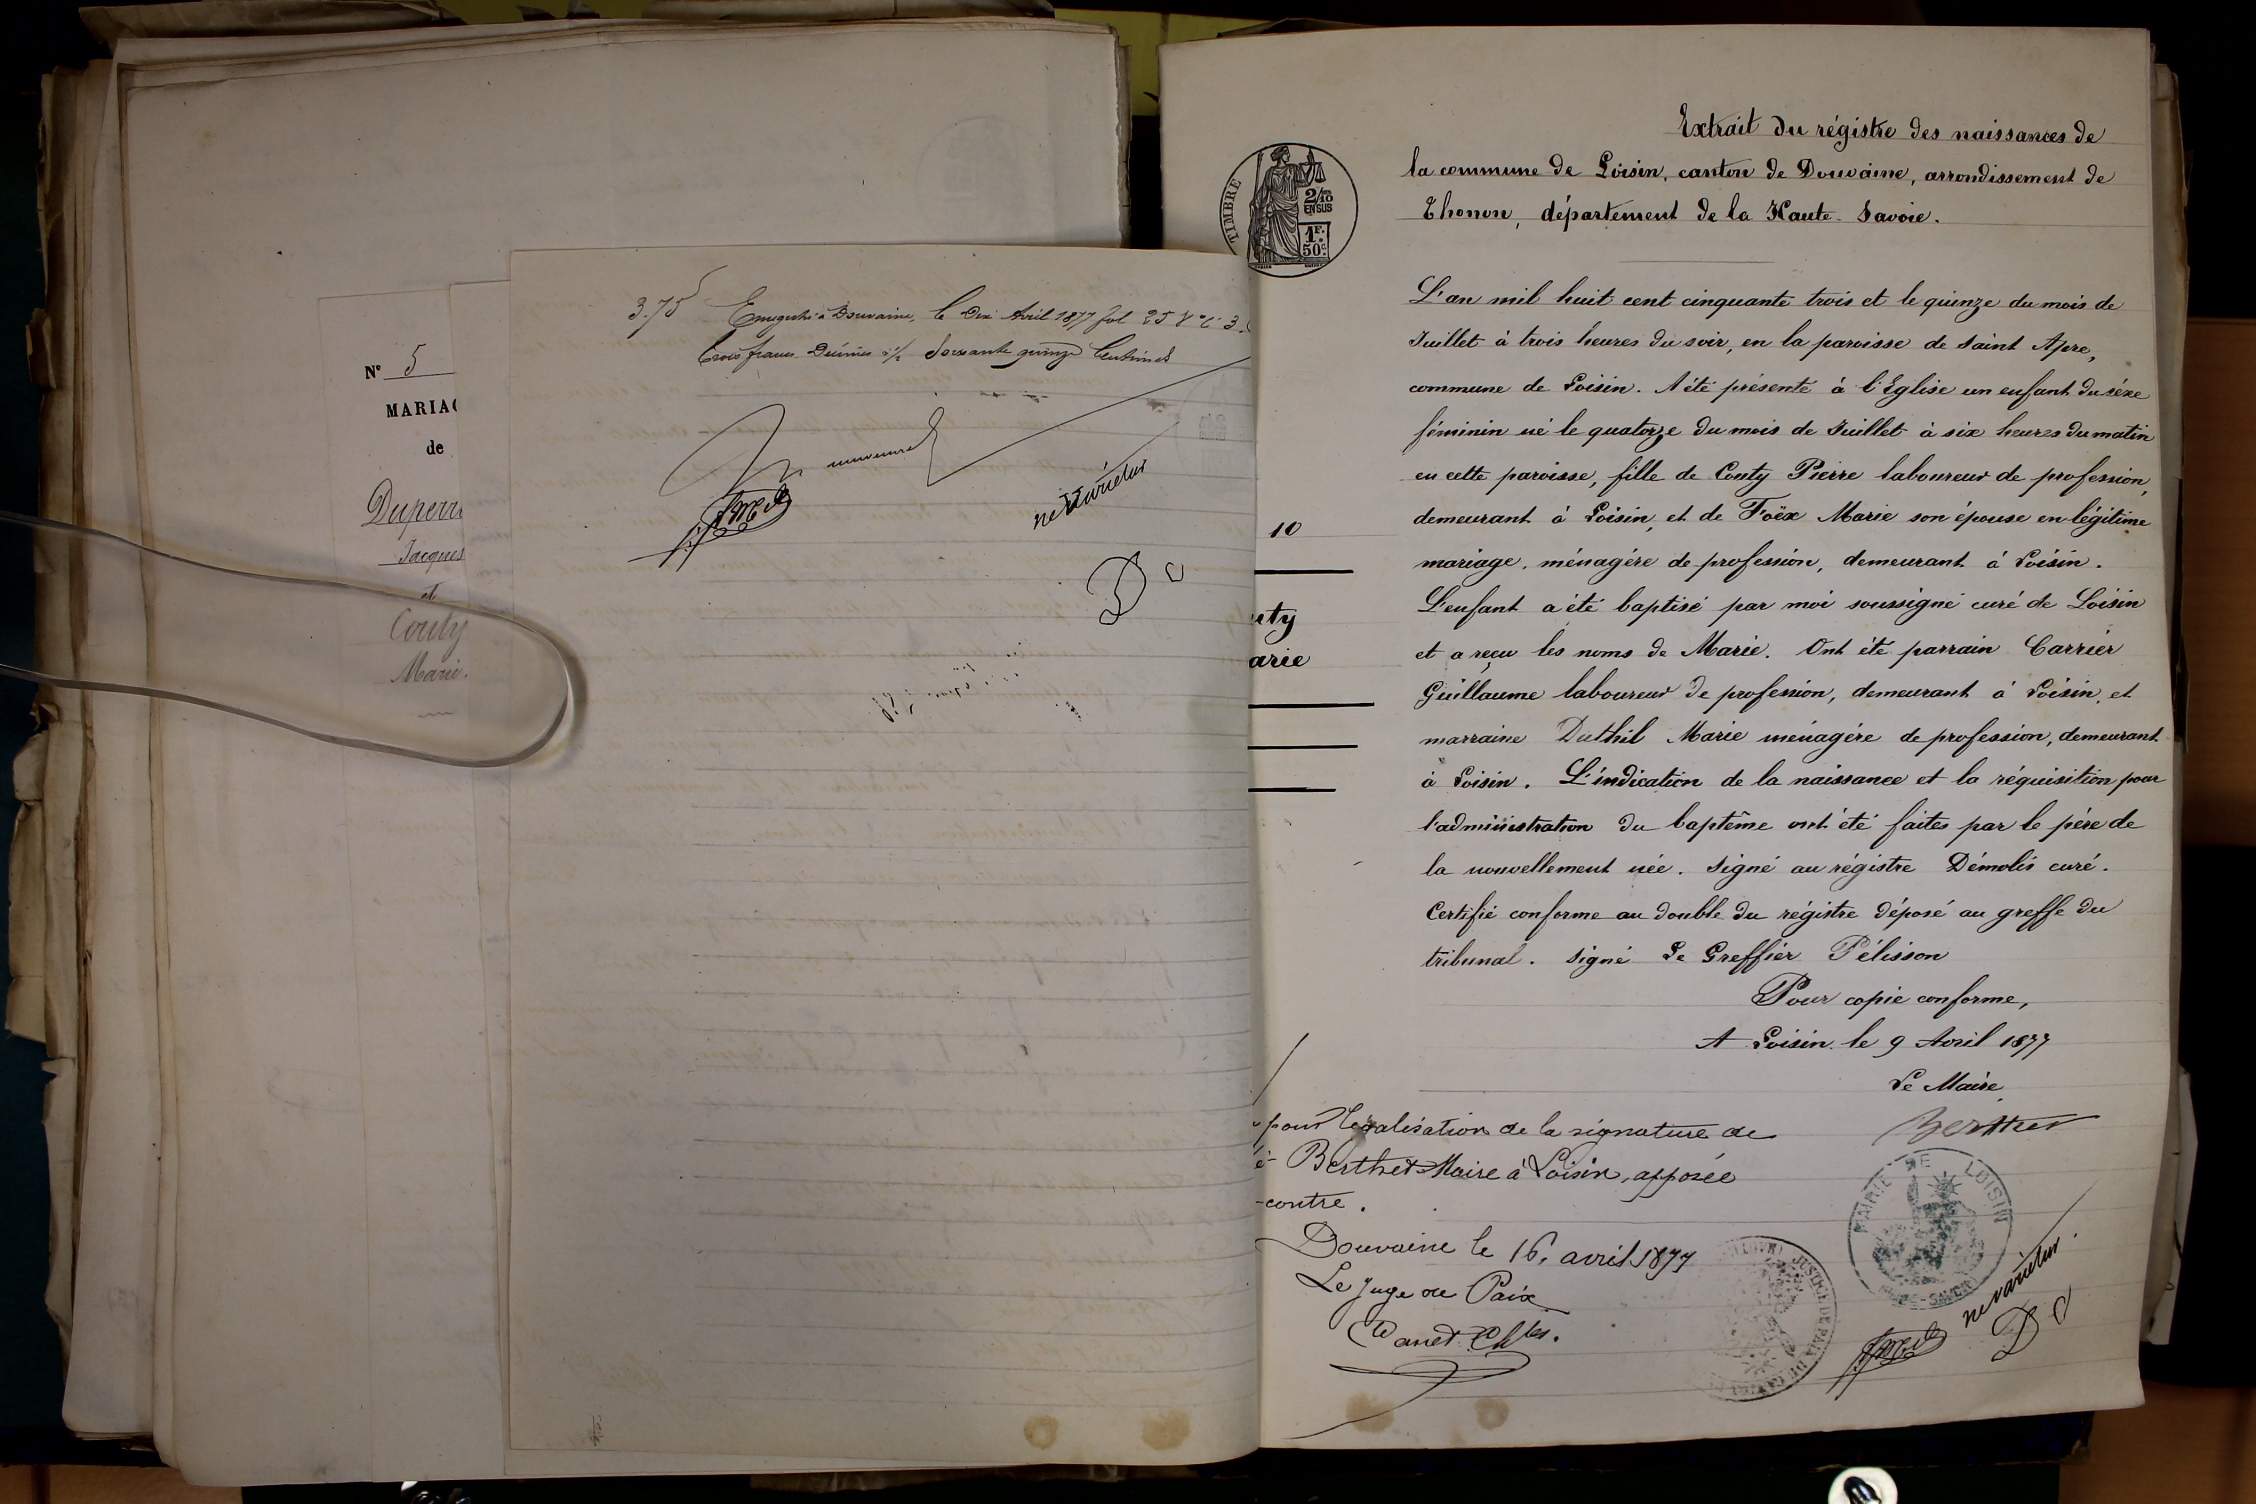 N° 5
MARIA
de
Duperr
Jacques
et
Couty
Marie.
3.75 Enregistré à Douvaine, le Dix Avril 1877 fol 25 V° C 3
Trois francs Décimes % Soixante quinze Centimes
ne varietur
D C
Extrait du régistre des naissances de
la commune de Loisin, canton de Douvaine, arrondissement de
Thonon, département de la Haute-Savoie.
TIMBRE
2/10
EN SUS
1F.
50c.
10
uty
arie
L'an mil huit cent cinquante trois et le quinze du mois de
Juillet à trois heures du soir, en la paroisse de Saint Apre,
commune de Loisin. A été présenté à l'Eglise un enfant du séxe
féminin né le quatorze du mois de Juillet à six heures du matin
en cette paroisse, fille de Couty Pierre laboureur de profession,
demeurant à Loisin, et de Foëx Marie son épouse en légitime
mariage, ménagère de profession, demeurant à Loisin.
L'enfant a été baptisé par moi soussigné curé de Loisin
et a reçu les noms de Marie. Ont été parrain Carrier
Guillaume laboureur de profession, demeurant à Loisin, et
marraine Duthil Marie ménagère de profession, demeurant
à Loisin. L'indication de la naissance et la réquisition pour
l'administration du baptême ont été faites par le père de
la nouvellement née. Signé au régistre Démolis curé.
Certifié conforme au double du régistre déposé au greffe du
tribunal. Signé Le Greffier Pélisson
Pour copie conforme,
A Loisin le 9 Avril 1877
Le Maire
Berthet
pour légalisation de la signature de
Berthet Maire à Loisin, apposée
-contre.
Douvaine le 16, avril 1877
Le Juge de Paix
MAIRIE DE LOISIN
SAVOIE
JUSTICE DE PAIX DU CANTON
ne varietur.
D C